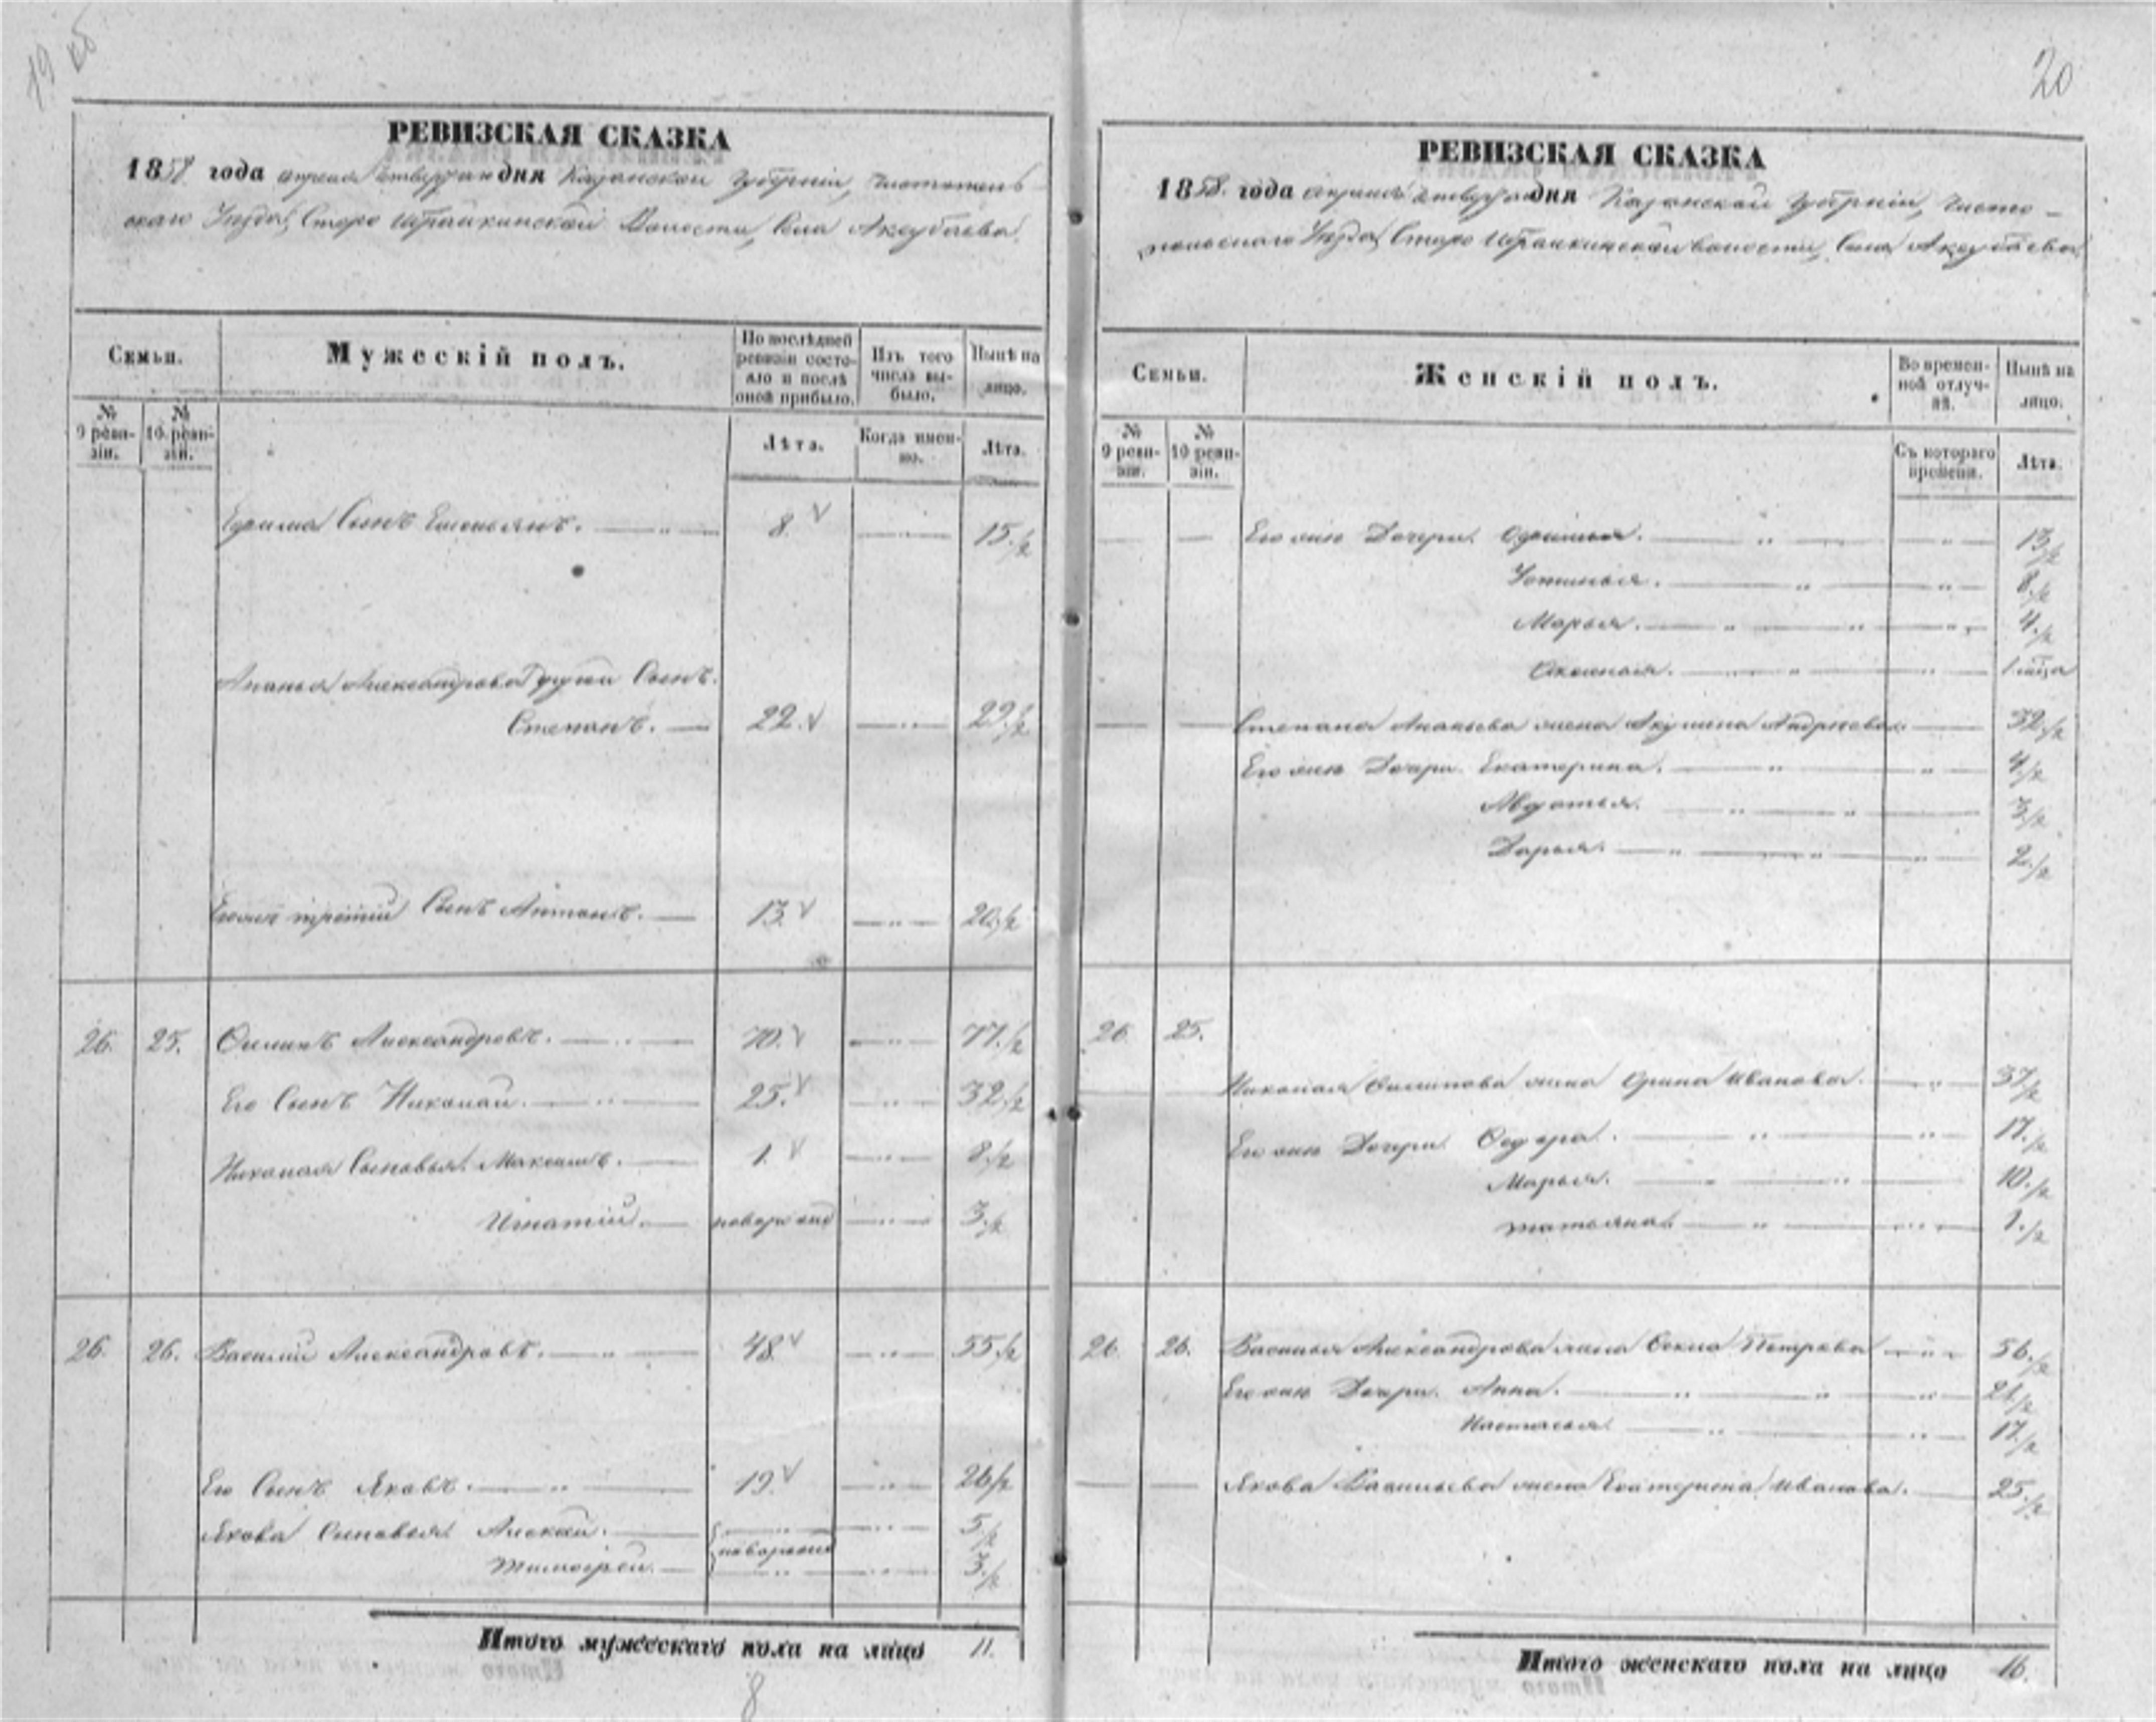 19 об
РЕВИЗСКАЯ СКАЗКА
1858 года апреля дня Казанской Губерніи, Чистополь-
скаго Уезда, Старо Ибрайкинской Волости, Села Аксубаева.
Семьи.
Мужескій полъ.
По послѣдней ревизіи состояло и послѣ оной прибыло.
Изъ того числа выбыло.
Нынѣ на лицо.
№ 9 ревизіи.
№ 10 ревизіи.
Лѣта.
Когда именно.
Лѣта.
Ефима Сынъ Емельянъ. 8. 15 1/2
Ананья Александрова другой Сынъ.
Степанъ. 22. 29 1/2
Егожъ третій Сынъ Антонъ. 13. 20 1/2
26. 25. Филипъ Александровъ. 70. 77 1/2
Его Сынъ Николай. 25. 32 1/2
Николая Сыновья Максимъ. 1. 8 1/2
Игнатій. новорожд 3 1/2
26. 26. Василій Александровъ. 48 55 1/2
Его Сынъ Яковъ. 19. 26 1/2
Якова Сыновья Алексей. 5 1/2
новорожд
Тимофей. 3 1/2
Итого мужескаго пола на лицо 11.
8
20
РЕВИЗСКАЯ СКАЗКА
1858 года апреля дня Казанской Губерніи, Чисто-
польскаго Уезда, Старо Ибрайкинской волости, Села Аксубаева
Семьи.
Женскій полъ.
Во временной отлучкѣ.
Нынѣ на лицо.
№ 9 ревизіи.
№ 10 ревизіи.
Съ котораго времени.
Лѣта.
Его жъ Дочери 13 1/2
Устинья. 8 1/2
Марья. 4 1/2
1
Степана Ананьева жена Акулина Андреева 32 1/2
Его жъ Дочери Екатерина. 4 1/2
Авдотья. 3 1/2
Дарья. 2 1/2
26 25.
Николая Филипова жена Орина Иванова. 37 1/2
Его жъ Дочери Федора. 17 1/2
Марья. 10 1/2
Татьяна. 1 1/2
26. 26. Василья Александрова жена Петрова 56 1/2
Его жъ Дочери Анна. 21 1/2
Настасья 17 1/2
Якова Васильева жена Екатерина Иванова. 25 1/2
Итого женскаго пола на лицо 16.